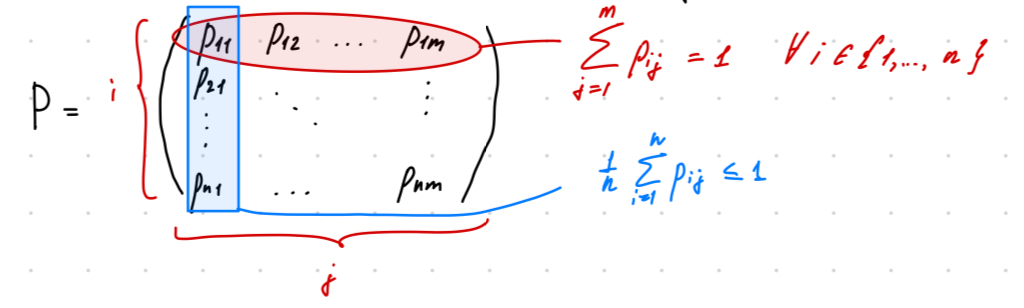 P = i ( p₁₁ p₁₂ ... p₁ₘ
p₂₁ ⋱ ⋮
⋮
pₙ₁ ... pₙₘ )
j
∑_{j=1}^{m} p_{ij} = 1 ∀ i ∈ {1,..., n}
1/n ∑_{i=1}^{n} p_{ij} ≤ 1